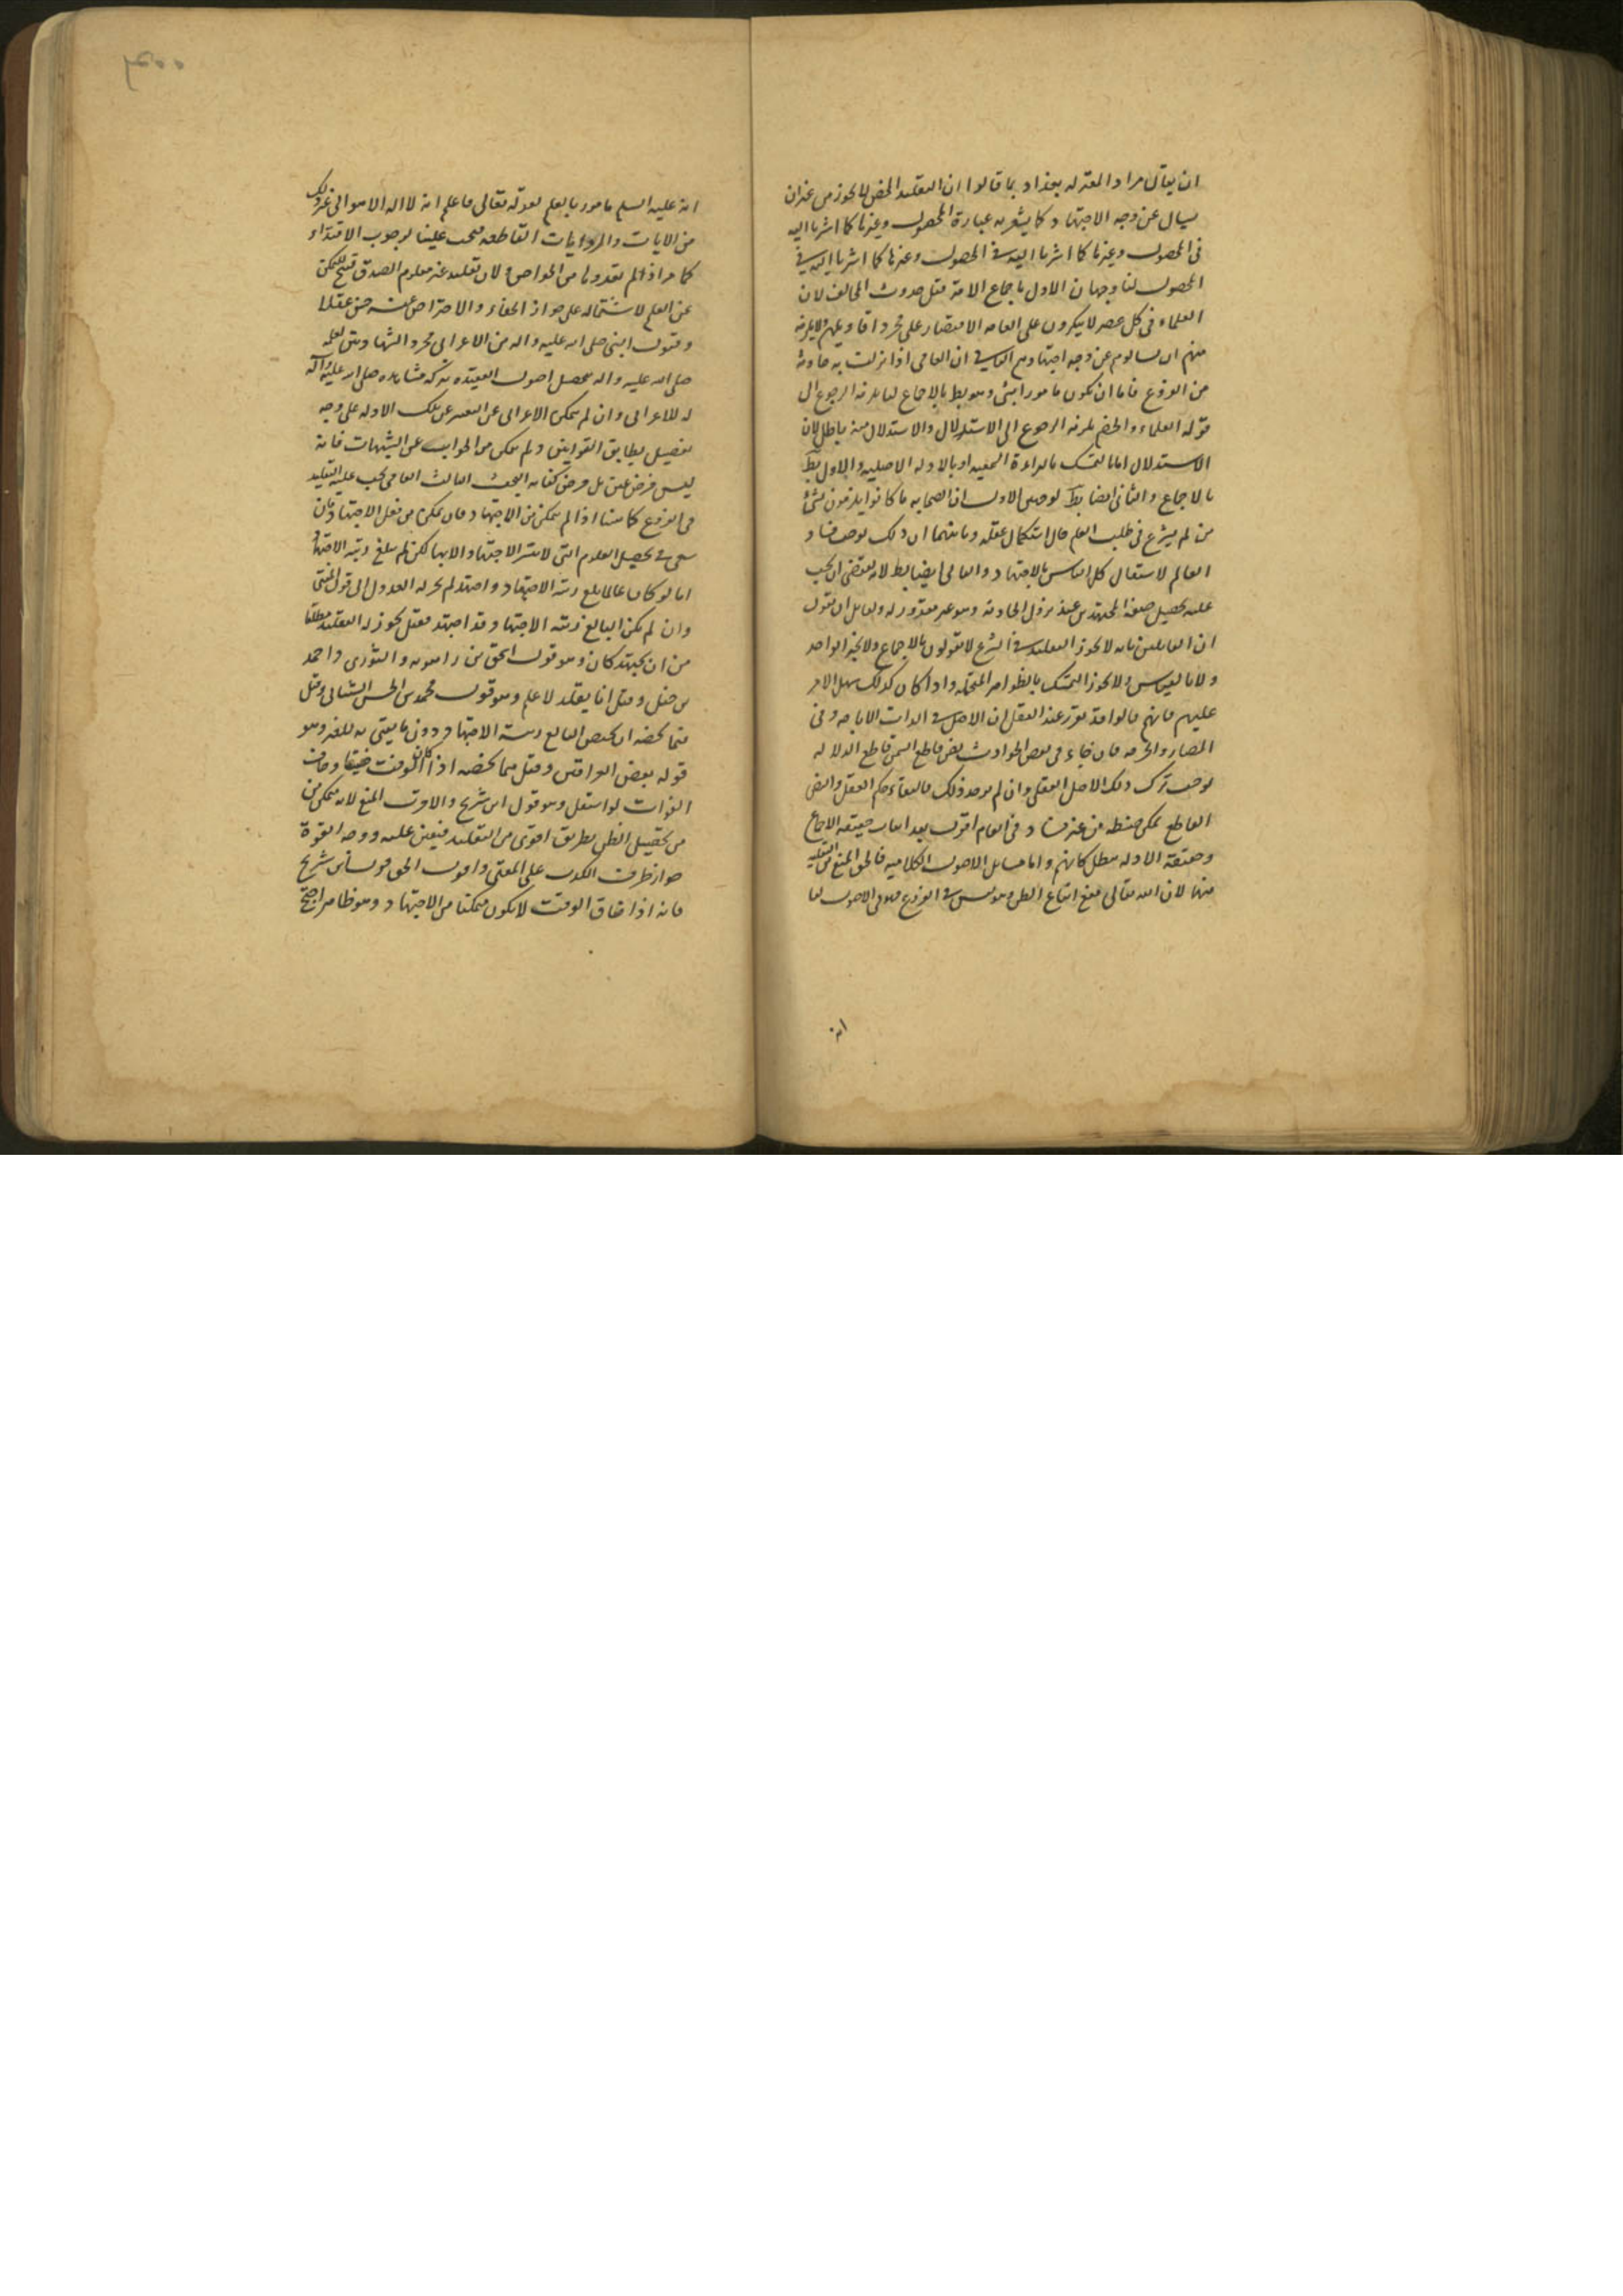 ان يقال مراد المعتزله ببغداد بما قالوا ان التقليد المحض لا يجوز من غير ان
يسال عن وجه الاجتهاد كما يشعر به عبارة المحصول وغيرها كما اشرنا اليه
فى المحصول وغيرها كما اشرنا اليه فى المحصول وغيرها كما اشرنا اليه فى
المحصول لنا وجهان الاول باجماع الامة قبل حدوث المخالف لان
العلماء فى كل عصر لا ينكرون على العامه الاقتصار على مجرد اقاويلهم ولا يلزمه
منهم ان يسالوهم عن وجه اجتهادهم الثانى ان العامى اذا نزلت به حادثة
من الفروع فاما ان يكون مامورا بشئ وهو بط بالاجماع لنا يلزمه الرجوع الى
قوله العلماء والخصم يلزمه الرجوع الى الاستدلال والاستدلال منه باطل لان
الاستدلال اما بالتمسك بالبراءة الاصليه او بالادله الاصليه والاول بط
بالاجماع والثانى ايضا بط لوجهين الاول ان الصحابه ما كانوا يلزمون بشئ
من لم يشرع فى طلب العلم حال استكمال عقله وثانيهما ان ذلك يوجب فساد
العالم لاشتغال كل الناس بالاجتهاد والتالى ايضا بط لانه يقتضى ان يجب
عليه تحصيل صفة المجتهدين عند نزول الحادثة وهو غير مقدور له ولقايل ان يقول
ان القايلين بانه لا يجوز التقليد فى الشرع لا يقولون بالاجماع ولا بخبر الواحد
ولا بالقياس ولا يجوز التمسك بالظواهر المحتملة واذا كان كذلك سهل الامر
عليهم فانهم قالوا قد تقرر عند العقل ان الاصل فى الذات الاباحه وفى
المضار والحرمه فان جاء فى بعض الحوادث نص قاطع المتن قاطع الدلاله
يوجب ترك ذلك الاصل العقلى وان لم يوجد ذلك فالبقاء حكم العقل والنص
القاطع يمكن ضبطه من غير فساد فى العام اقول بعد اثبات حقيقه الاجماع
وحقيقة الادله بطل كلامهم واما مسايل الاصول الكلاميه فالحق المنع من التقليد
منها لان الله تعالى منع اتباع الظن وهو ليس فى الفروع فهو فى الاصول لنا
انه
انه عليه السلم مامور بالعلم لقوله تعالى فاعلم انه لا اله الا هو الى غير ذلك
من الايات والروايات القاطعه فيجب علينا لوجوب الاقتداء
كما مر اذ لم يعد ونها من الخواص ولان تقليد غير معلوم الصدق قبيح للتمكن
عن العلم لاشتماله على جواز الخطاء والاحتراص عنه حسن عقلا
وقبول النبى صلى الله عليه واله من الاعرابى مجرد الشهادتين لعلمه
صلى الله عليه واله بحصول اصول العقيده ببركة مشاهده صلى الله عليه وآله
له للاعرابى وان لم يمكن الاعرابى عن التعبير عن تلك الادله على وجه
تفصيل يطابق القوانين ولم يتمكن من الجواب عن الشبهات فانه
ليس فرض عين بل فرض كفايه البحث الثالث العامى يجب عليه التقليد
فى الفروع كما بينا اذا لم يتمكن من الاجتهاد فان تمكن من فعل الاجتهاد بان
سعى فى تحصيل العلوم التى لا يتم الاجتهاد الا بها لكن لم يبلغ رتبه الاجتهاد
اما لو كان عالما بلغ رتبه الاجتهاد واجتهد لم يجز له العدول الى قول المفتى
وان لم يكن البالغ رتبه الاجتهاد قد اجتهد فقيل يجوز له التقليد مطلقا
من ان يجتهد كان وهو قول اسحق بن راهويه والثورى واحمد
بن حنبل وقيل انما يقلد لاعلم وهو قول محمد بن الحسن الشيبانى وقيل
فيما يخصه ان يختص البالغ رتبة الاجتهاد دون ما يفتى به للغير وهو
قوله بعض العراقيين وقيل فيما يخصه اذا كان الوقت ضيقا وخاف
الفوات لو اشتغل وهو قول ابن شريح والاقرب المنع لانه متمكن من
من تحصيل الظن بطريق اقوى من التقليد فيتعين عليه ووجه القوة
جواز تطرق الكذب على المفتى واقول الحق قول ابن شريح
فانه اذا ضاق الوقت لا يكون متمكنا من الاجتهاد وهو ظاهر احتج